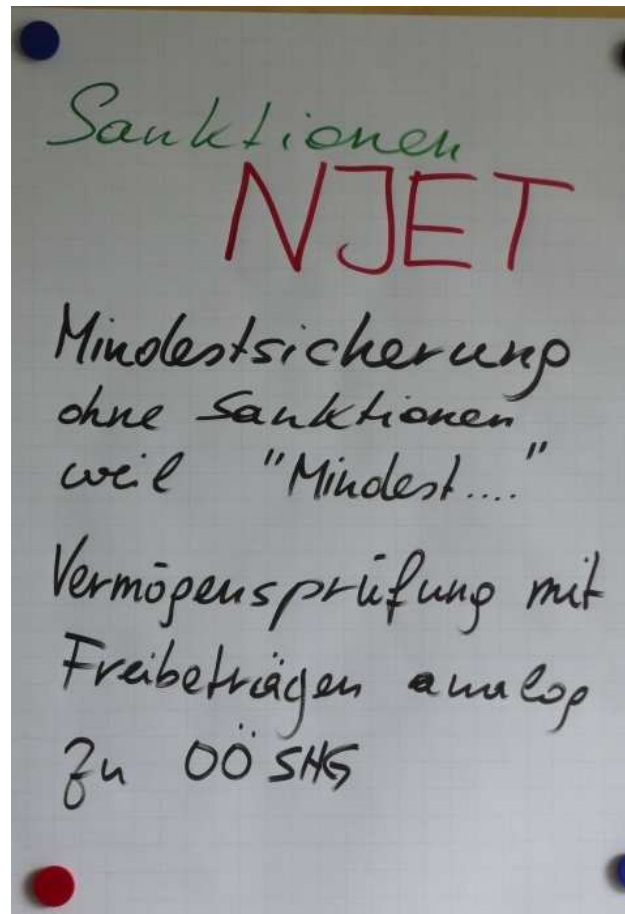 Sanktionen
NJET
Mindestsicherung
ohne Sanktionen
weil "Mindest...."
Vermögensprüfung mit
Freibeträgen analog
zu OÖ SHG